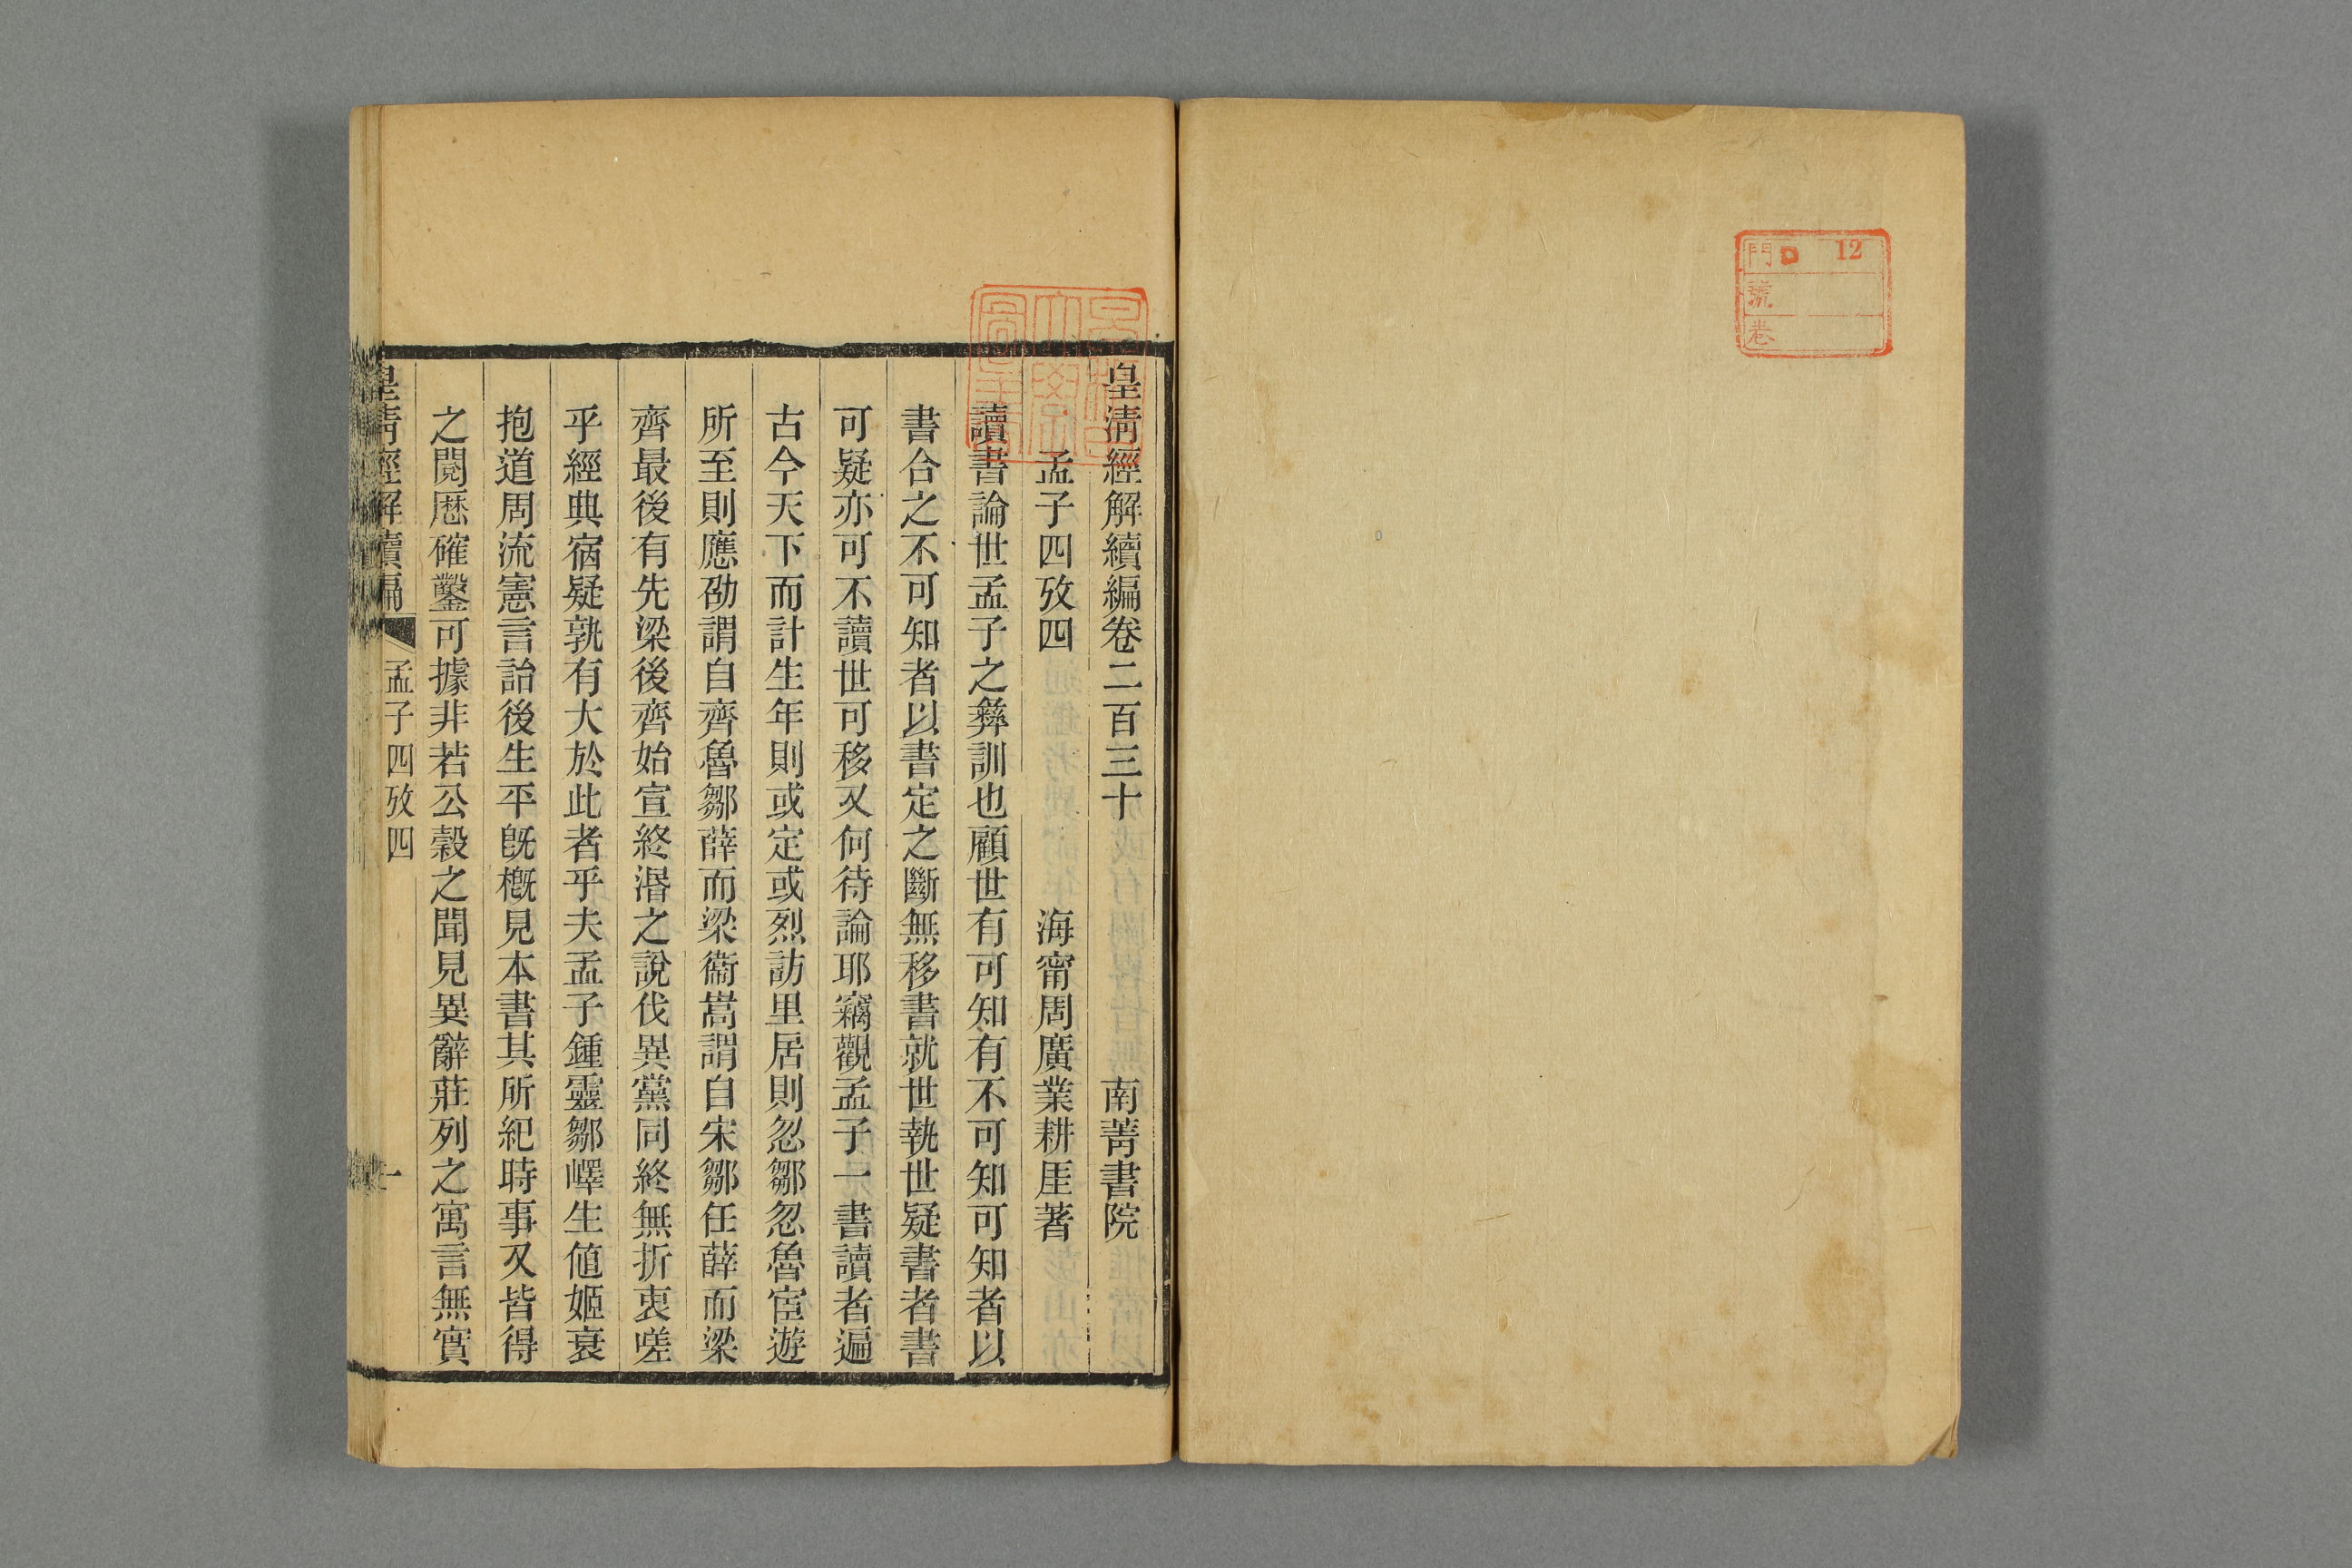 門 口 12
號
卷
皇清經解續編卷二百三十 南菁書院
孟子四攷四 海甯周廣業耕厓著
讀書論世孟子之彝訓也顧世有可知有不可知可知者以
書合之不可知者以書定之斷無移書就世執世疑書者書
可疑亦可不讀世可移又何待論耶竊觀孟子一書讀者遍
古今天下而計生年則或定或烈訪里居則忽鄒忽魯宦遊
所至則應劭謂自齊魯鄒薛而梁衞嵩謂自宋鄒任薛而梁
齊最後有先梁後齊始宣終湣之說伐異黨同終無折衷嗟
乎經典宿疑孰有大於此者乎夫孟子鍾靈鄒嶧生値姬衰
抱道周流憲言詒後生平旣槪見本書其所紀時事又皆得
之閱厯確鑿可據非若公穀之聞見異辭莊列之寓言無實
皇清經解續編 孟子四攷四 一